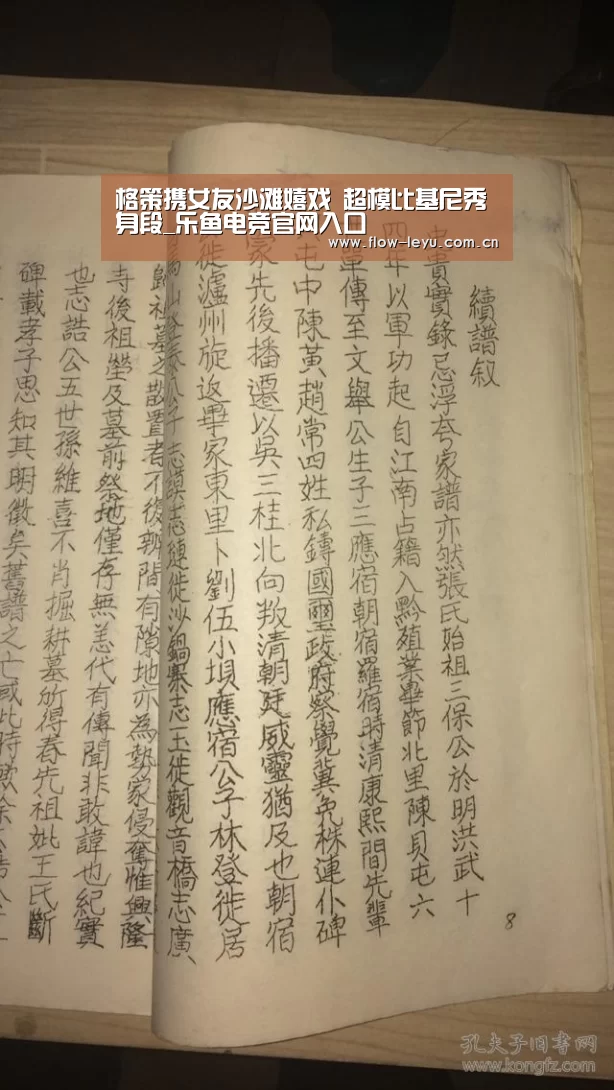 格策携女友沙滩嬉戏 超模比基尼秀
身段_乐鱼电竞官网入口
www.flow-leyu.com.cn
續譜叙
貴實錄忌浮夸家譜亦然張氏始祖三保公於明洪武十
四年以軍功起自江南占籍入黔殖業畢節北里陳貝屯六
單傳至文舉公生子三應宿朝宿羅宿時清康熙間先輩
屯中陳黃趙常四姓私鑄國璽政府察覺冀免株連仆碑
家先後播遷以吳三桂北向叛清朝廷威靈猶及也朝宿
徙瀘州旋返畢家東里卜劉伍小垻應宿公子林登徙居
公子志謨志璉徙沙鍋寨志玉徙觀音橋志廣
歸祖墓之散置者不復辨間有隙地亦為勢家侵奪惟興隆
寺後祖塋及墓前祭地僅存無恙代有傳聞非敢諱也紀實
也志誥公五世孫維喜不肖掘耕墓所得春先祖妣王氏斷
碑載孝子思知其明徵矣舊譜之亡或此時歟余
8
孔夫子旧书网
www.kongfz.com